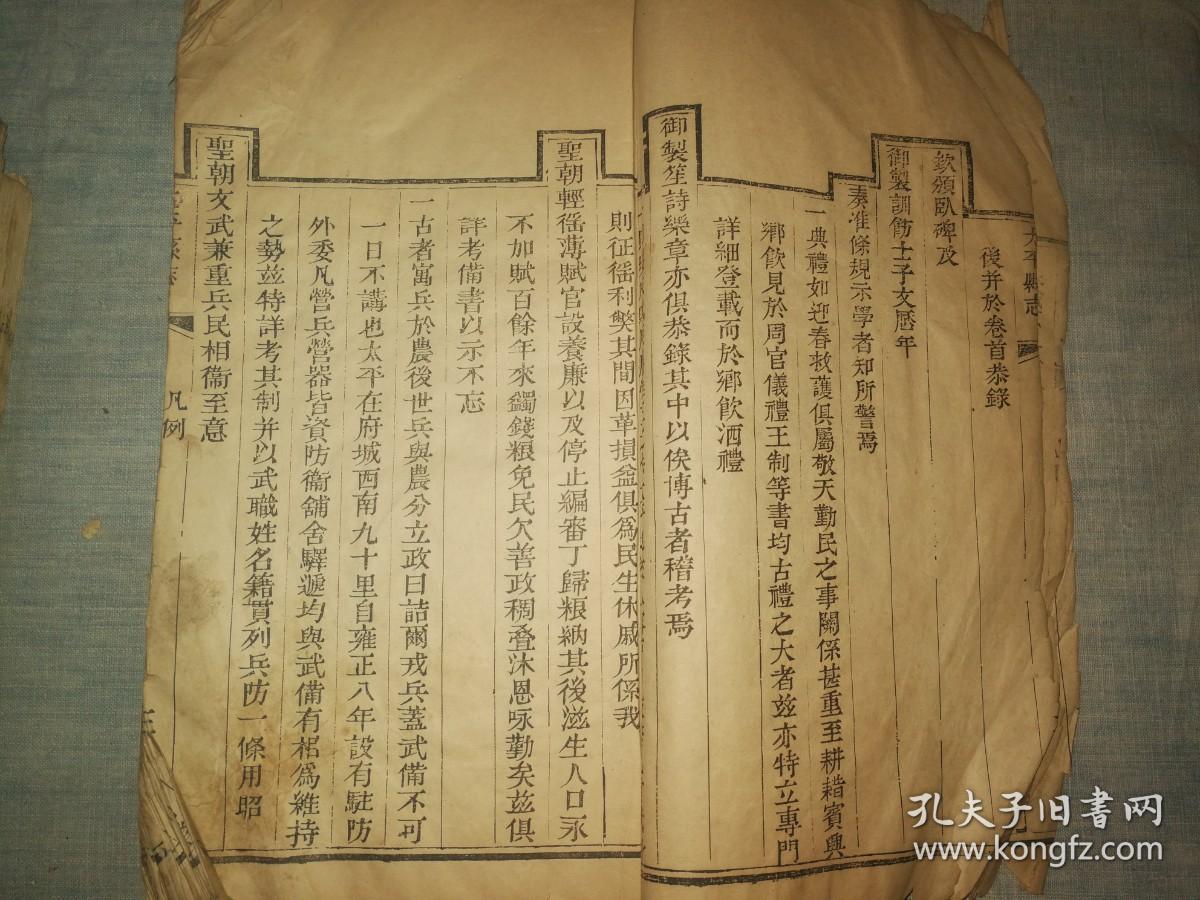 後并於卷首恭錄
欽頒臥碑及
御製訓飭士子文歷年
奏准條規示學者知所警焉
一典禮如迎春救護俱屬敬天勤民之事關係甚重至耕耤賓興
鄉飲見於周官儀禮王制等書均古禮之大者玆亦特立專門
詳細登載而於鄉飲酒禮
御製笙詩樂章亦俱恭錄其中以俟博古者稽考焉
則征徭利獘其間因革損益俱爲民生休戚所係我
聖朝輕徭薄賦官設養廉以及停止編審丁歸粮納其後滋生人口永
不加賦百餘年來蠲錢粮免民欠善政稠叠沐恩咏勤矣玆俱
詳考備書以示不忘
一古者寓兵於農後世兵與農分立政曰詰爾戎兵蓋武備不可
一日不講也太平在府城西南九十里自雍正八年設有駐防
外委凡營兵營器皆資防衞舖舍驛遞均與武備有相爲維持
之勢玆特詳考其制并以武職姓名籍貫列兵防一條用昭
聖朝文武兼重兵民相衞至意
凡例
孔夫子旧书网
www.kongfz.com